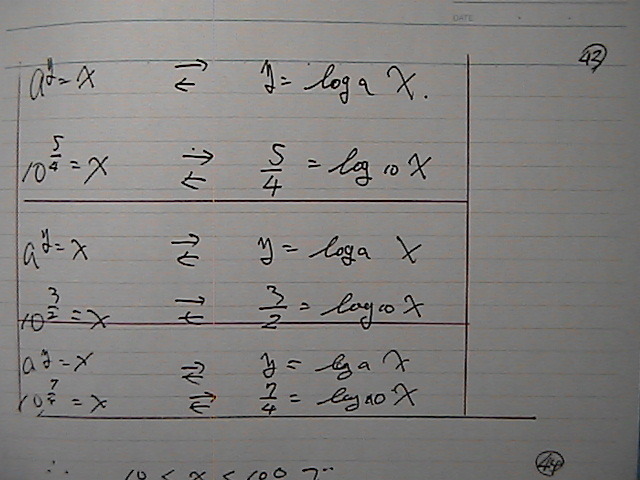 DATE
43
a^y = x ⇄ y = log a x.
10^5/4 = x ⇄ 5/4 = log 10 x
a^y = x ⇄ y = log a x
10^3/2 = x ⇄ 3/2 = log 10 x
a^y = x ⇄ y = log a x
10^7/4 = x ⇄ 7/4 = log 10 x
44
∴ 10 < x < 100 で